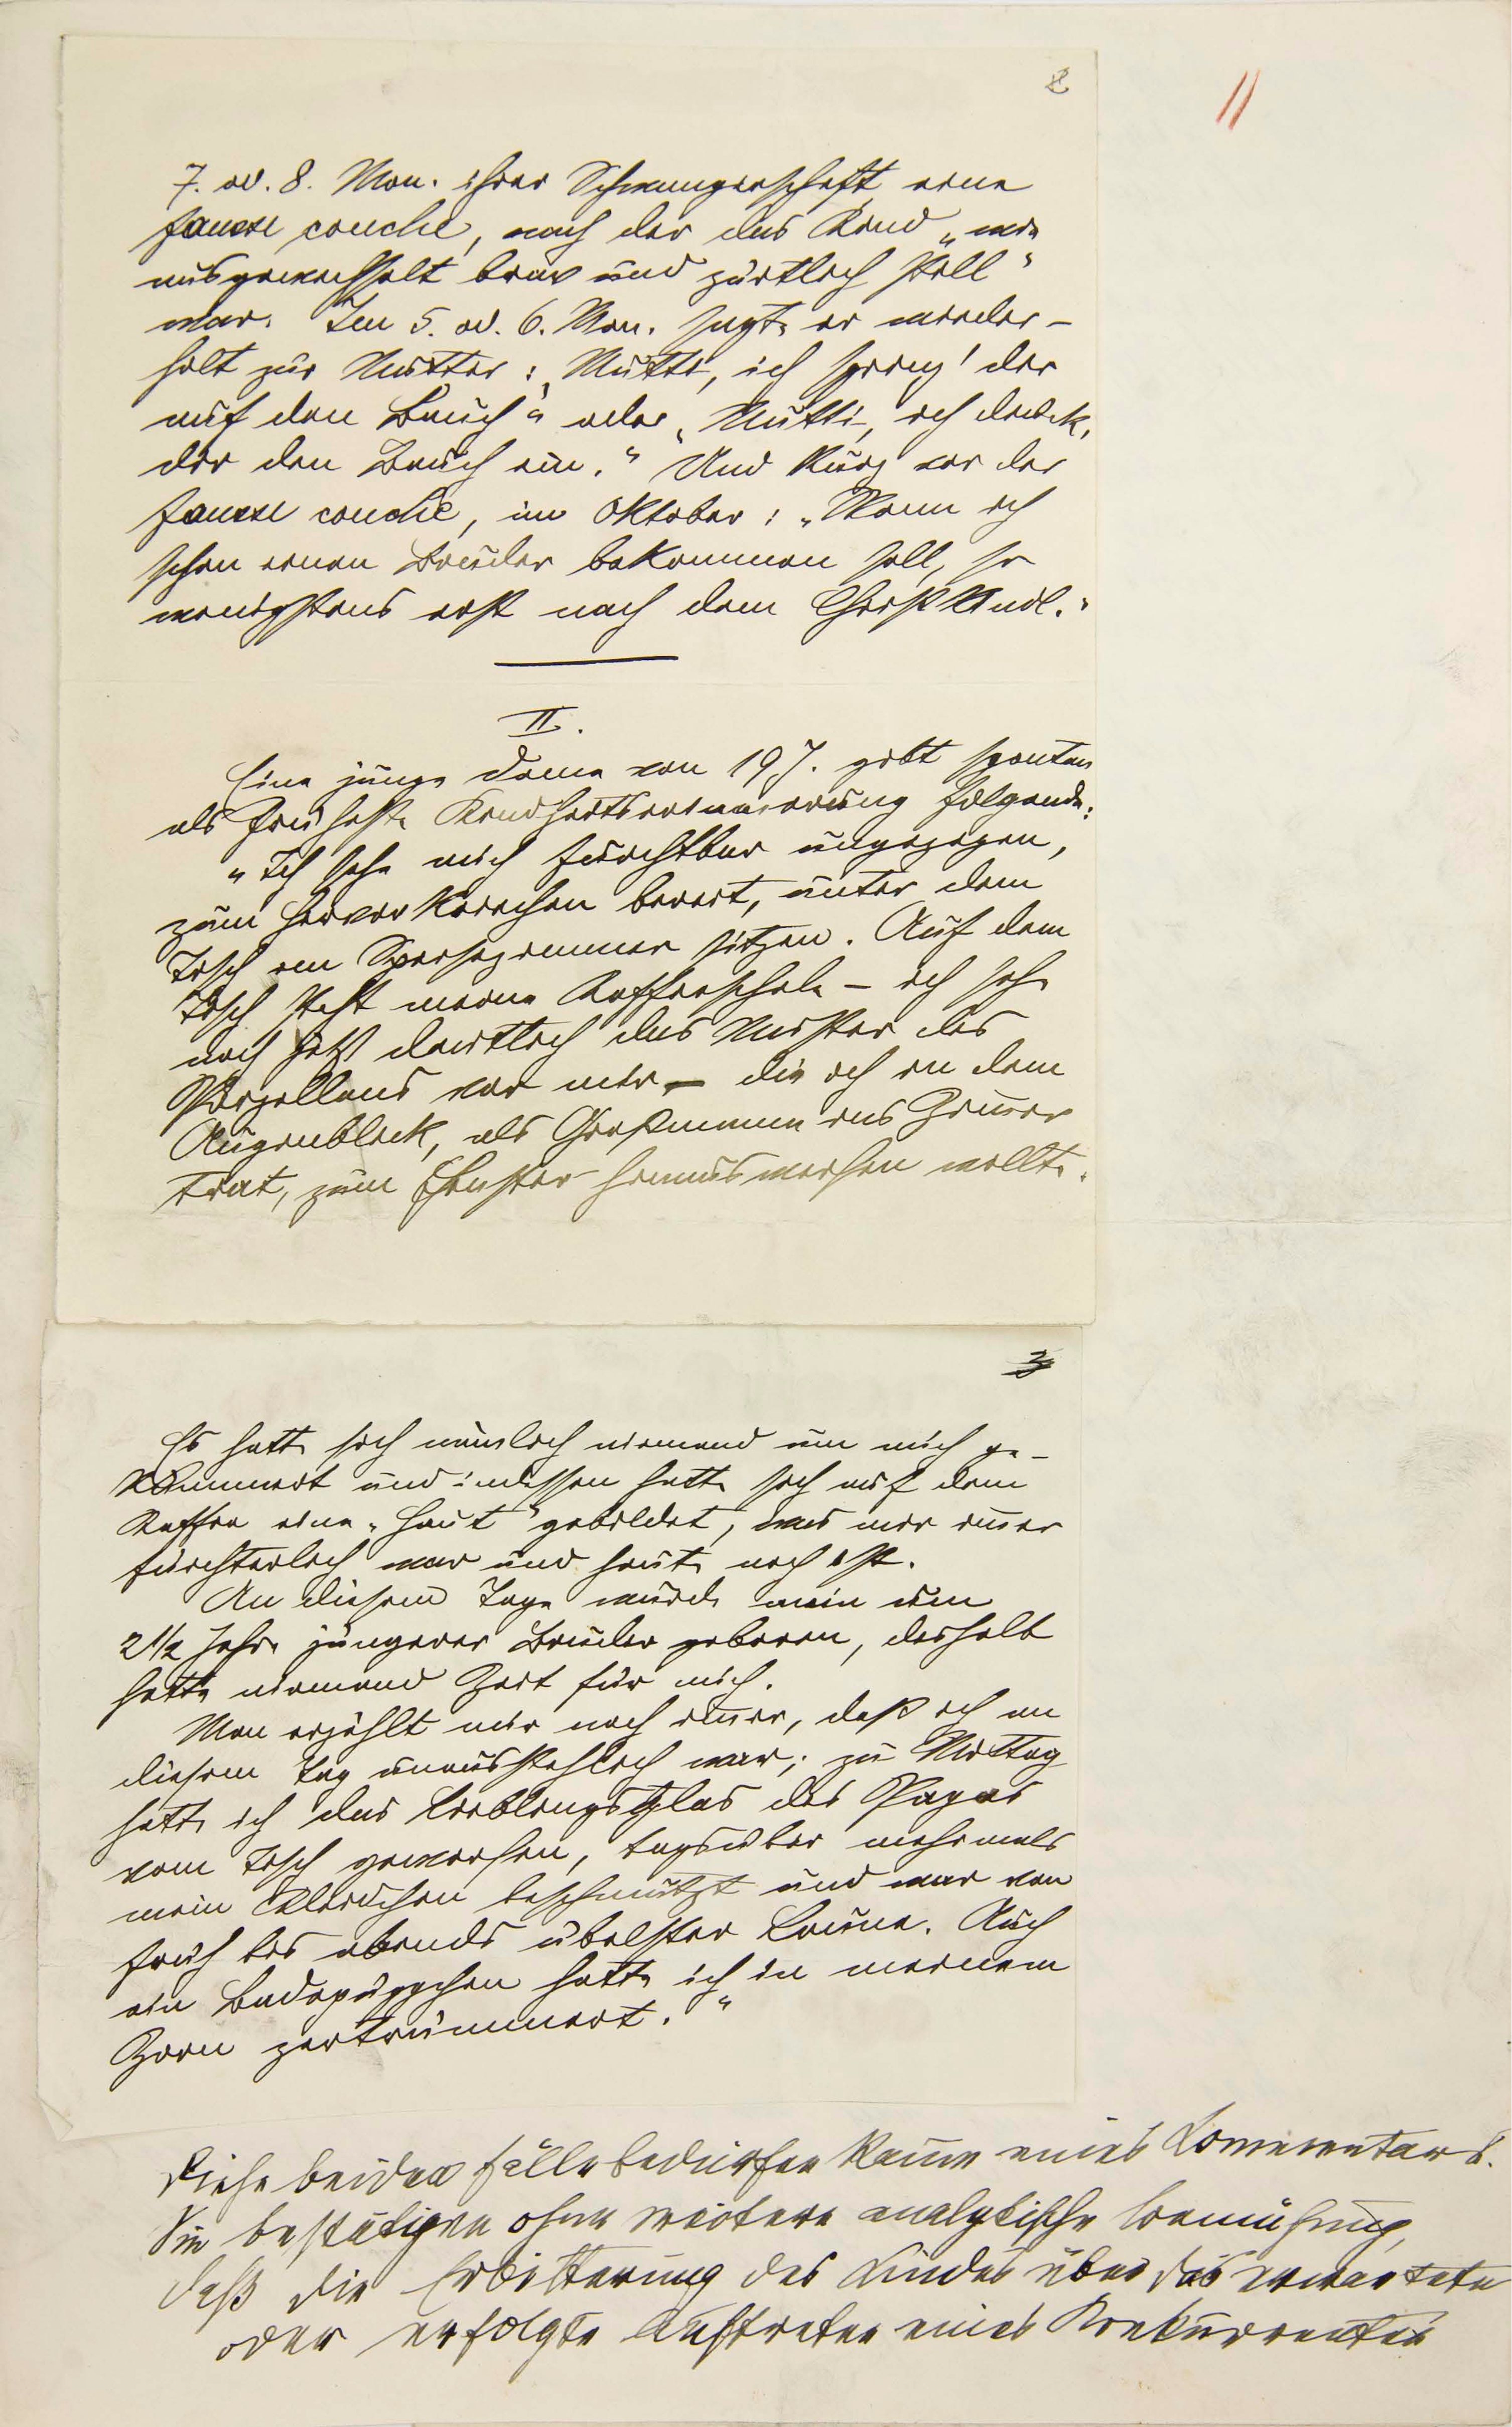 2
11
7. od. 8. Mon. ihrer Schwangerschaft eine
fausse couche, nach der das Kind „wie
ausgewechselt brav und zärtlich still“
war. Im 5. od. 6. Mon. sagte er wieder-
holt zur Mutter: „Mutti, ich spring' dir
auf den Bauch“ oder „Mutti, ich drück,
dir den Bauch ein.“ Und kurz vor der
fausse couche, im Oktober: „Wenn ich
schon einen Bruder bekommen soll, so
wenigstens erst nach dem Christkindl.“
II.
Eine junge Dame von 19 J. gibt spontan
als früheste Kindheitserinnerung folgende:
„Ich sehe mich furchtbar ungezogen,
zum Hervorkriechen bereit, unter dem
Tisch im Speisezimmer sitzen. Auf dem
Tisch steht meine Kaffeeschale – ich sehe
noch jetzt deutlich das Muster des
Porzellans vor mir – die ich in dem
Augenblick, als Großmama ins Zimmer
trat, zum Fenster hinauswerfen wollte.
3
Es hatte sich nämlich niemand um mich ge-
kümmert und indessen hatte sich auf dem
Kaffee eine „Haut“ gebildet, was mir immer
fürchterlich war und heute noch ist.
An diesem Tage wurde mein um
2 1/2 Jahre jüngerer Bruder geboren, deshalb
hatte niemand Zeit für mich.
Man erzählt mir noch immer, daß ich an
diesem Tag unausstehlich war; zu Mittag
hatte ich das Lieblingsglas des Papas
vom Tisch geworfen, tagsüber mehrmals
mein Kleidchen beschmutzt und war von
früh bis abends übelster Laune. Auch
ein Badepüppchen hatte ich in meinem
Zorn zertrümmert.“
Diese beiden Fälle bedürfen kaum eines Kommentars.
Sie bestätigen ohne weitere analytische Bemühung,
daß die Erbitterung des Kindes über das erwartete
oder erfolgte Auftreten eines Konkurrenten